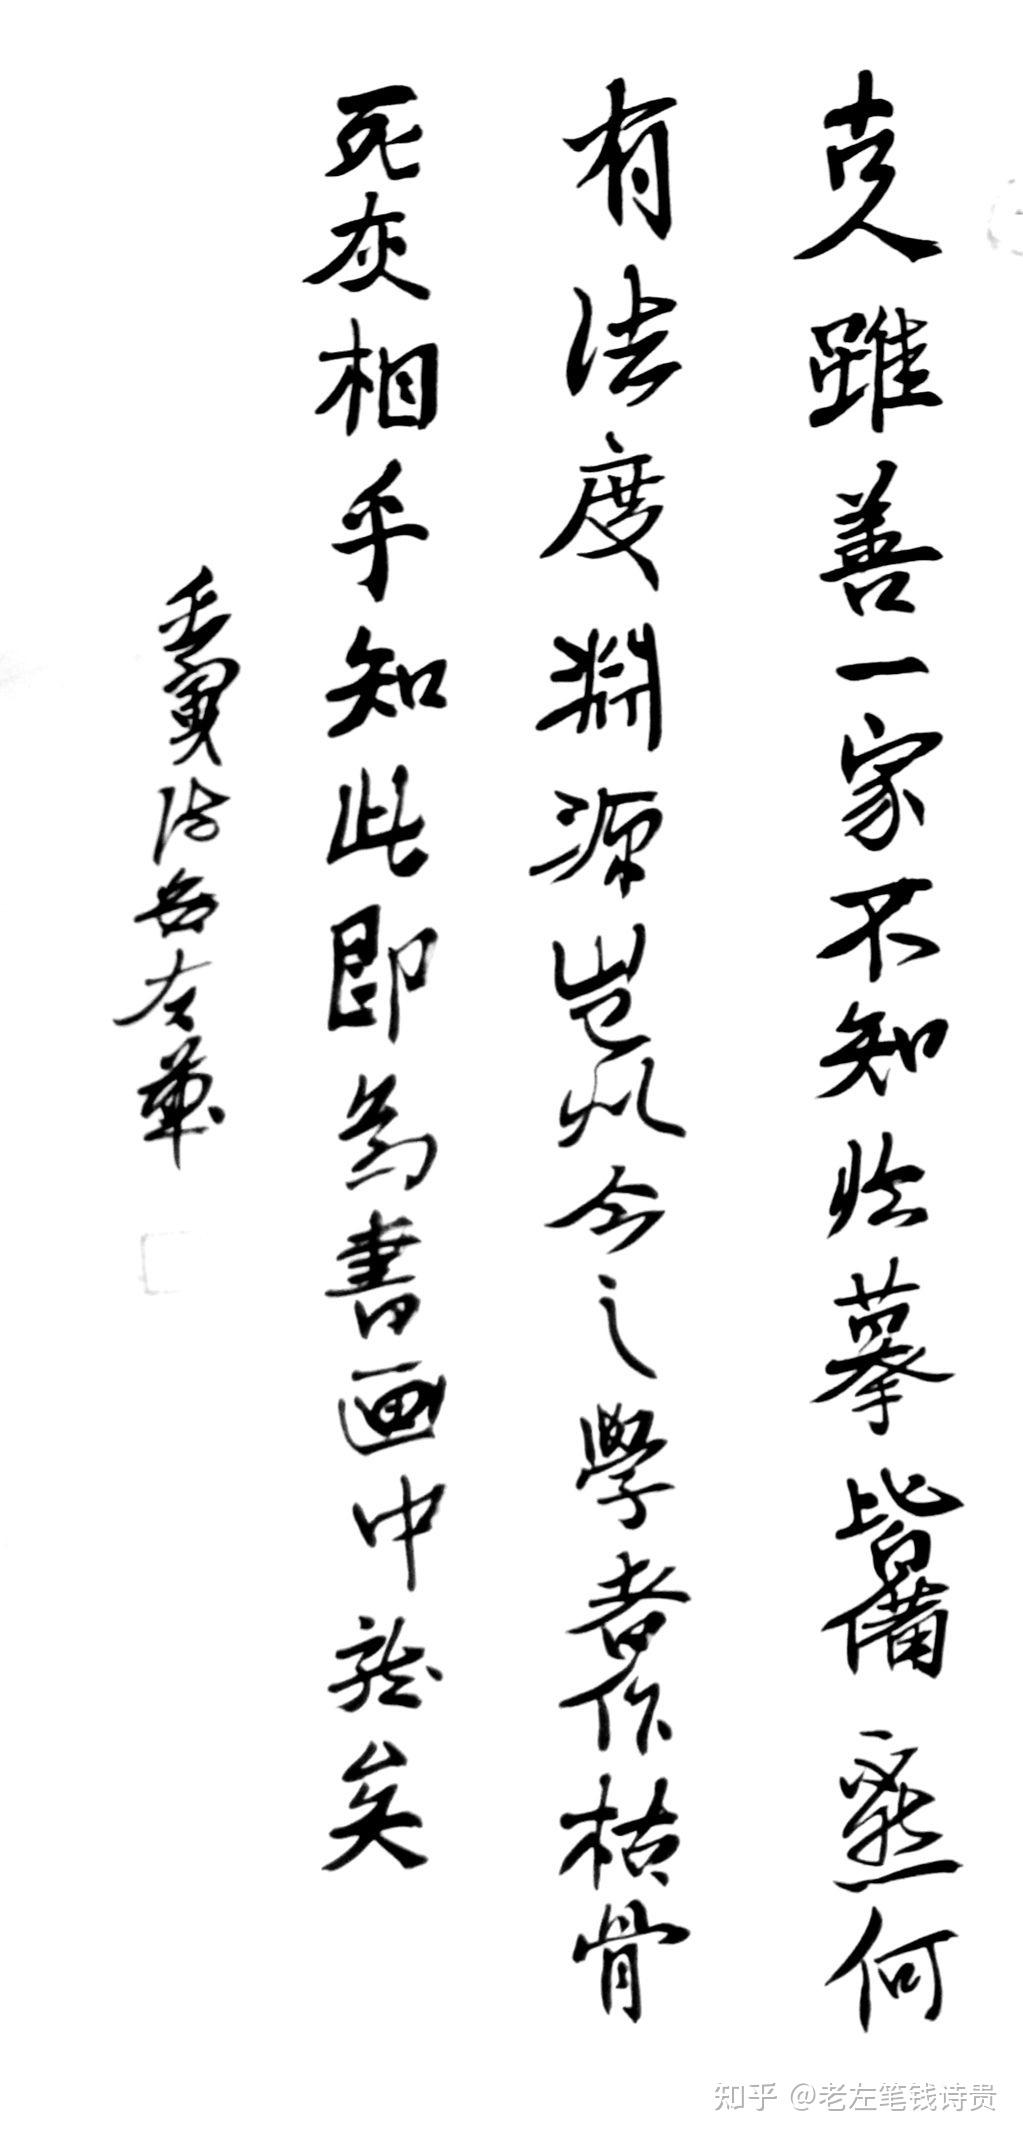 古人雖善一家不知臨摹皆備不然何
有法度淵源豈似今之學者作枯骨
死灰相乎知此即為書画中龍矣
壬寅 左
知乎 @老左笔钱诗贵